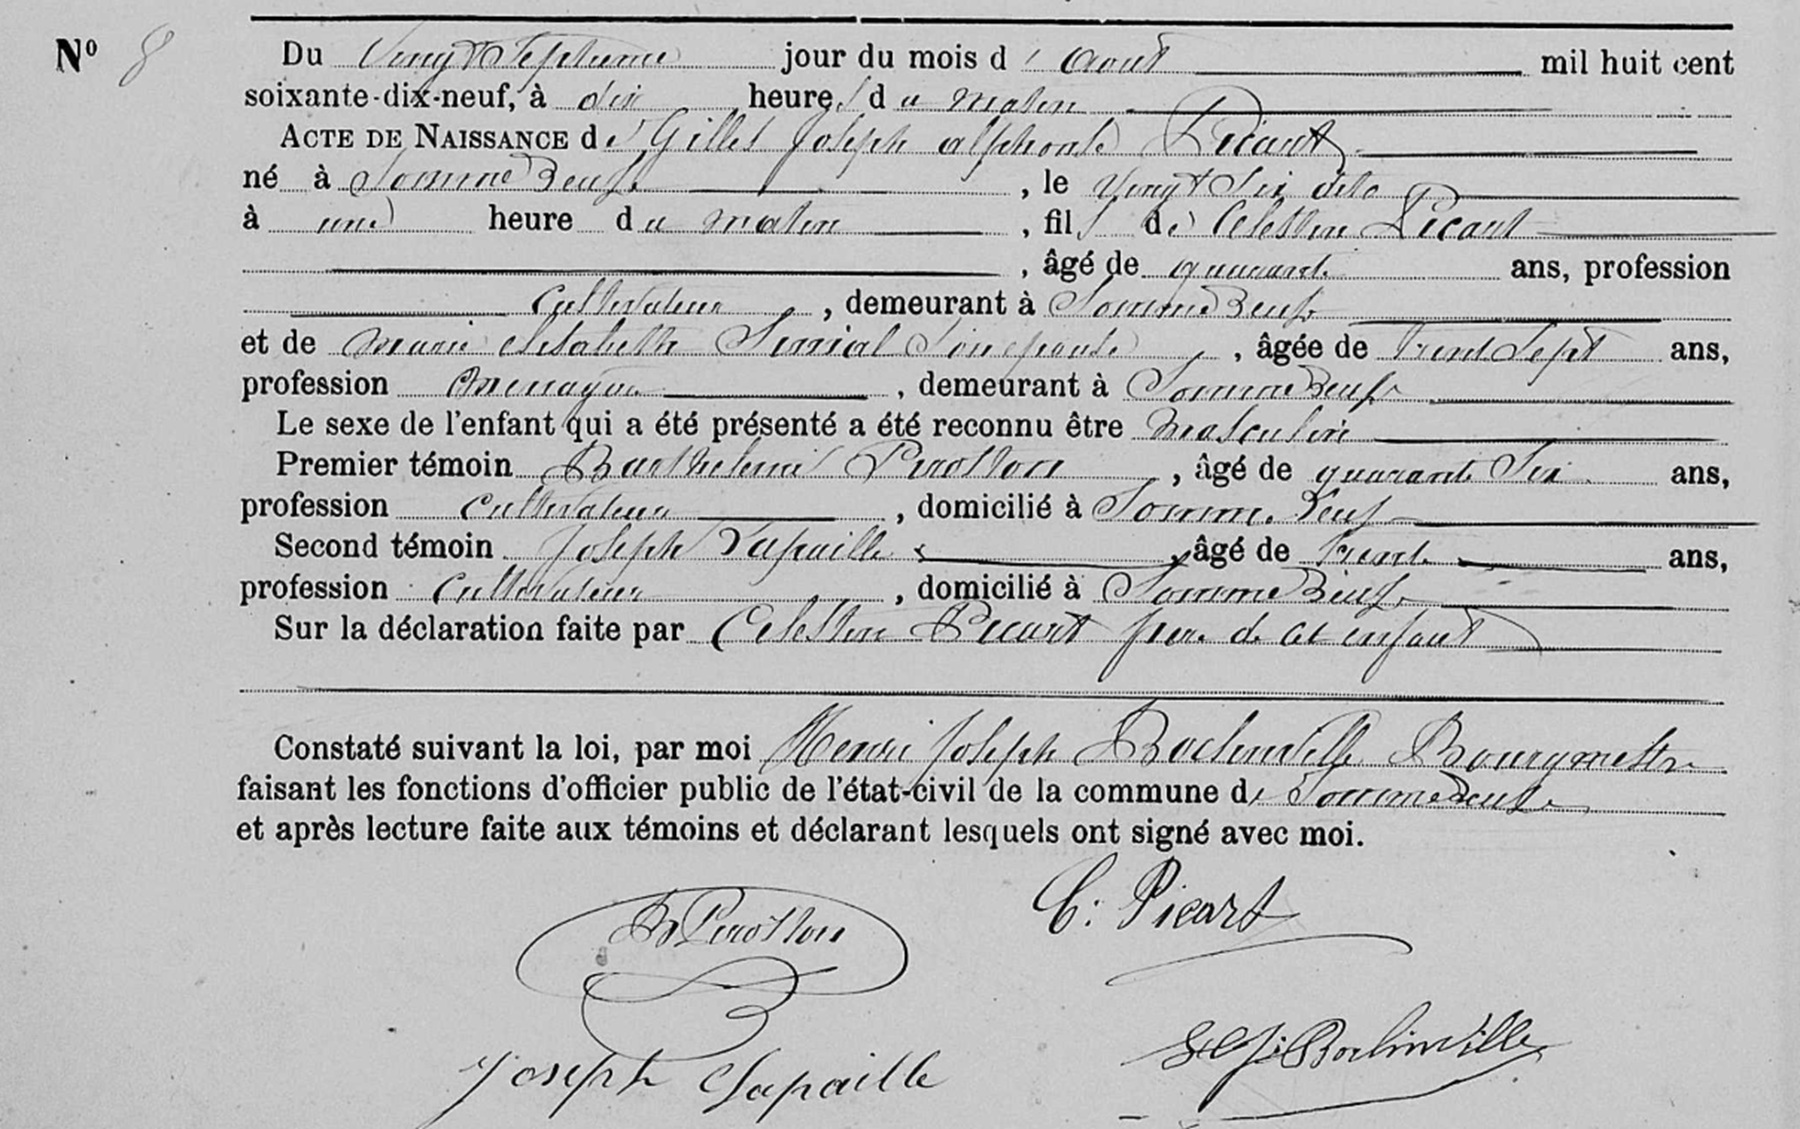 Nº 8 Du Vingt Septieme jour du mois d' aout mil huit cent
soixante-dix-neuf, à dix heures du matin
ACTE DE NAISSANCE de Gilles Joseph alphonse Picart
né à Somme Leuse, le vingt Six dito
à une heure du matin, fils de Celestin Picart
, âgé de quarante ans, profession
Cultivateur, demeurant à Somme Leuse
et de Marie Elisabeth Son epouse, âgée de trent Sept ans,
profession menagere, demeurant à Somme Leuse
Le sexe de l'enfant qui a été présenté a été reconnu être Masculin
Premier témoin Barthelemi Pirotton, âgé de quarante Six ans,
profession Cultivateur, domicilié à Somme Leuse
Second témoin Joseph Lapaille, âgé de trente ans,
profession Cultivateur, domicilié à Somme Leuse
Sur la déclaration faite par Celestin Picart pere de cet enfant
Constaté suivant la loi, par moi Henri Joseph Bourgmestre
faisant les fonctions d'officier public de l'état-civil de la commune de Somme Leuse
et après lecture faite aux témoins et déclarant lesquels ont signé avec moi.
B Pirotton C: Picart
Joseph Lapaille